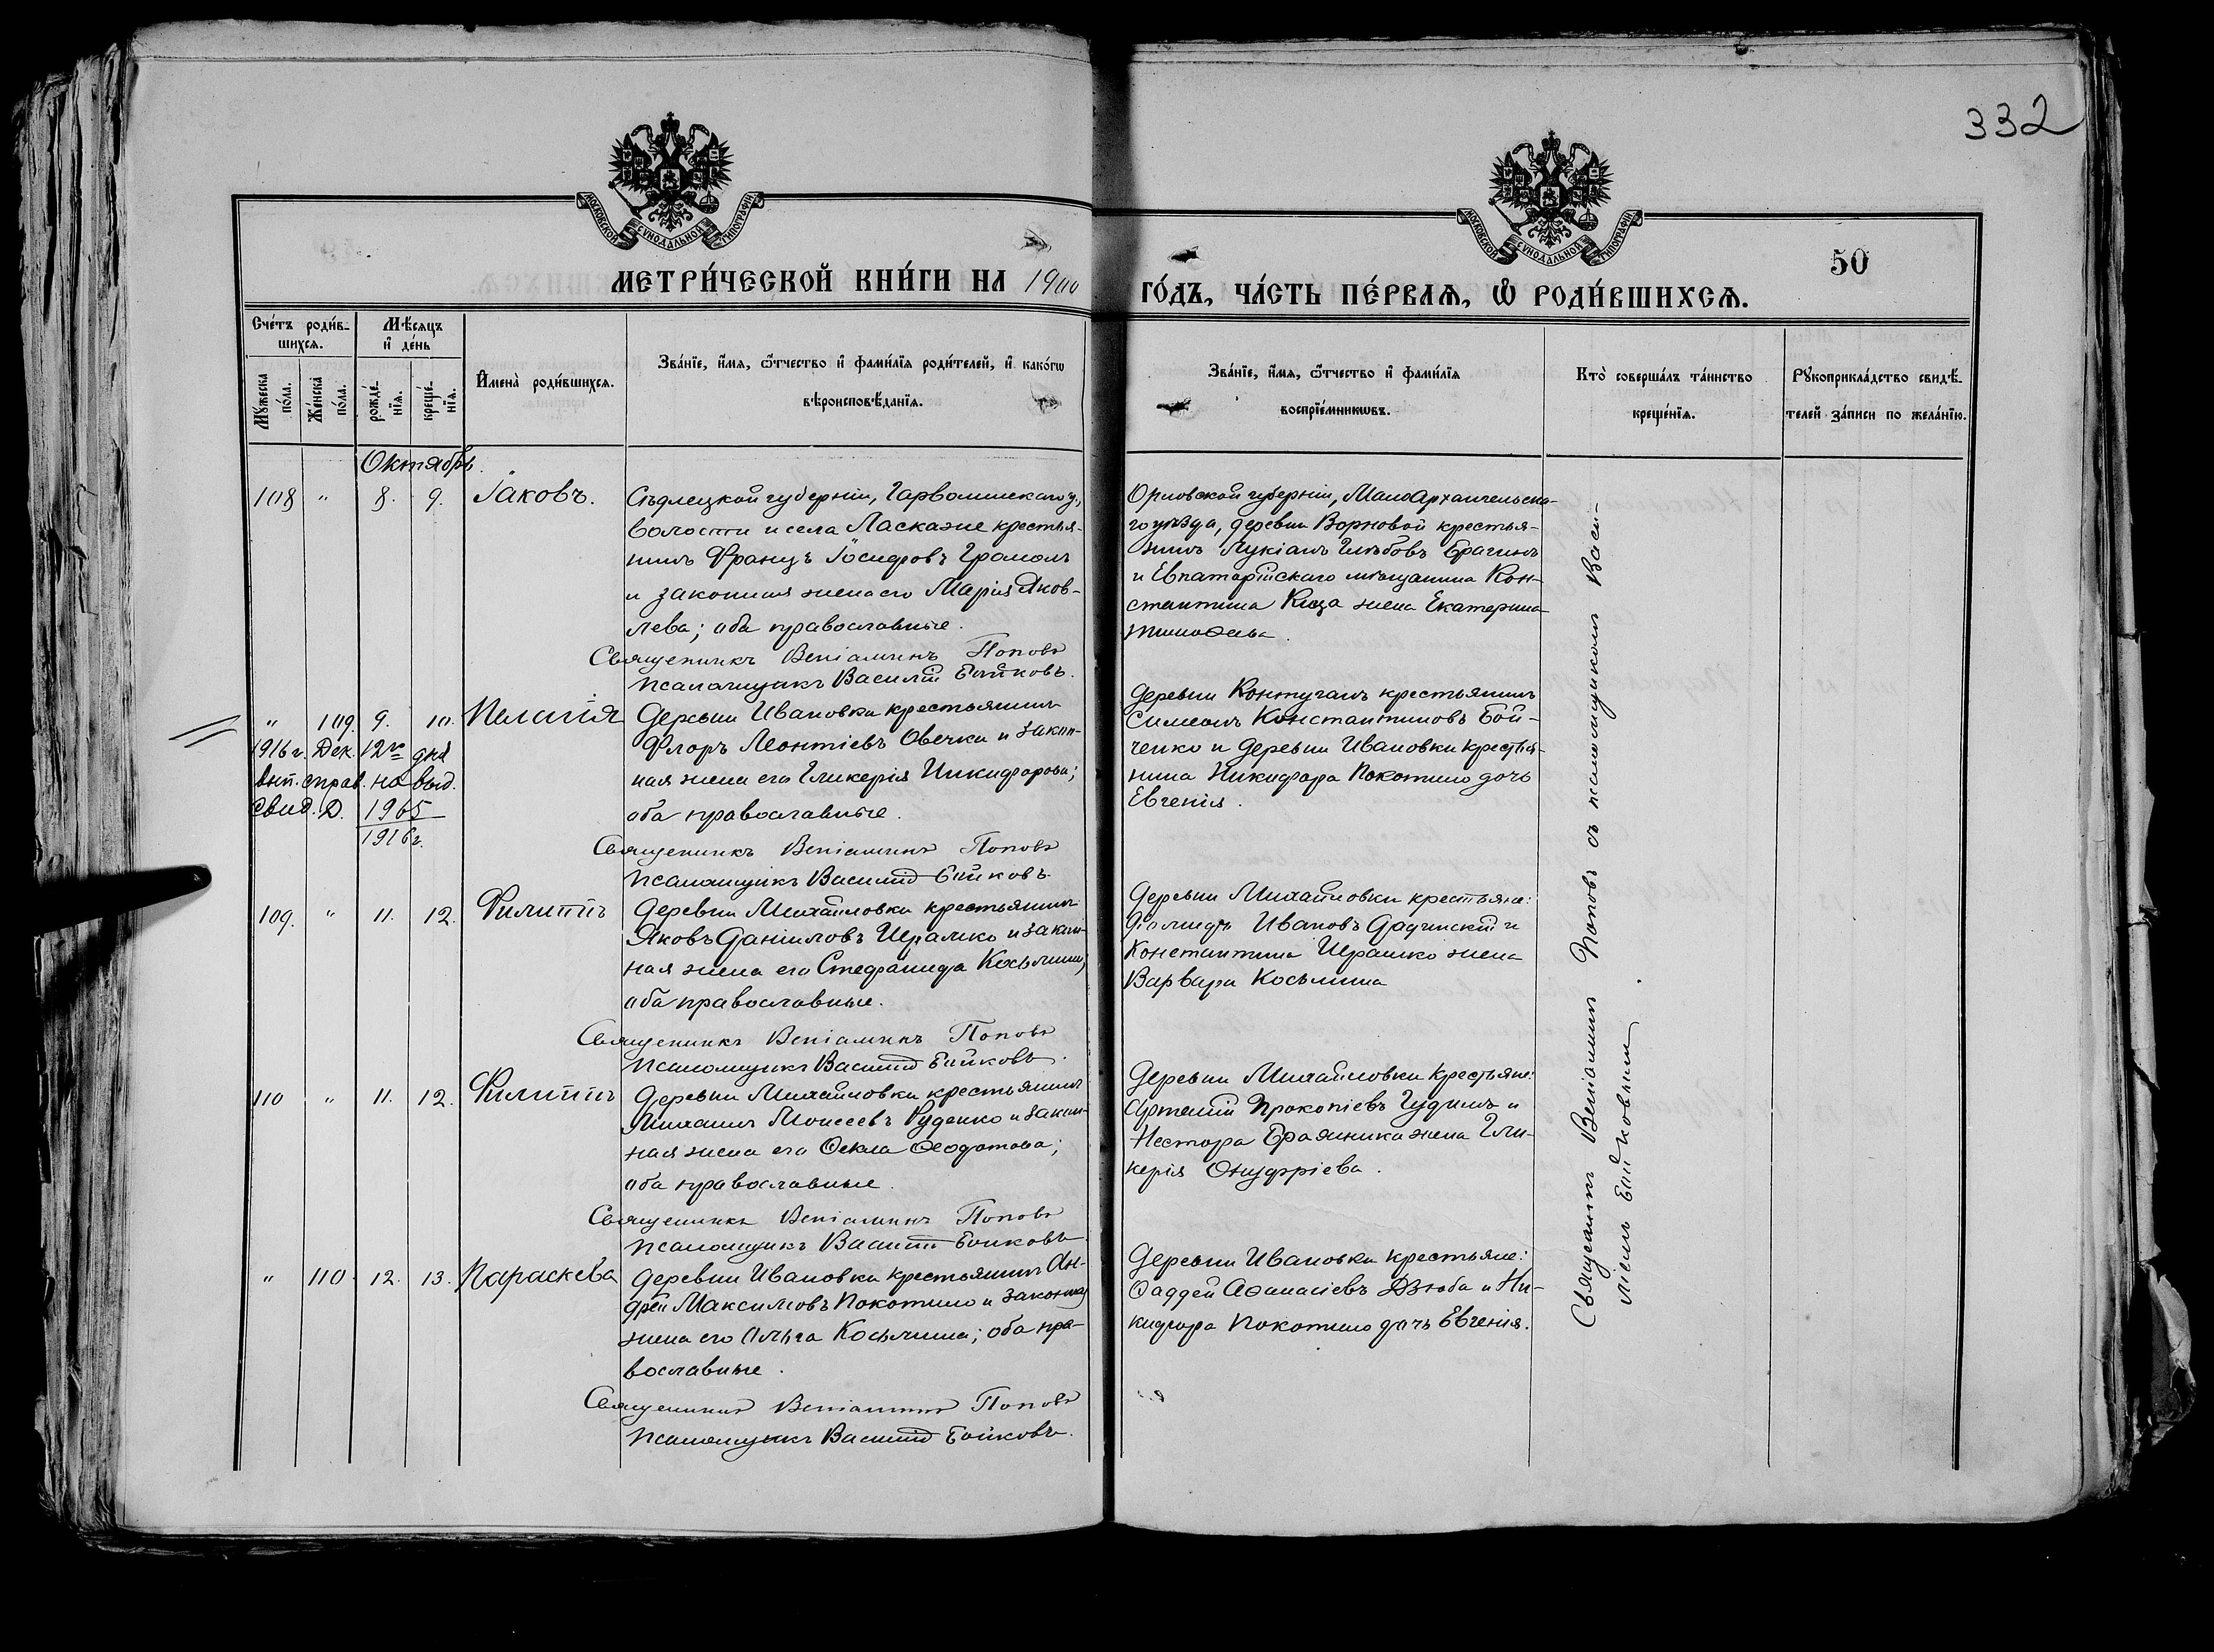 332
МОСКОВСКОЙ СѴНОДАЛЬНОЙ ТИПОГРАФІИ
МОСКОВСКОЙ СѴНОДАЛЬНОЙ ТИПОГРАФІИ
50
МЕТРИ́ЧЕСКОЙ КНИ́ГИ НА 1900
ГО́ДЪ, ЧА́СТЬ ПЕ́РВАѦ, Ѡ҆ РОДИ́ВШИХСѦ.
Сче́тъ роди́в-
шихсѧ.
Мѣ́сѧцъ
и҆ де́нь
Мꙋ́жеска
по́ла.
Же́нска
по́ла.
рожде́-
нїѧ.
креще́-
нїѧ.
И҆мена̀ роди́вшихсѧ.
Зва́нїе, и҆́мѧ, ѻ҆́тчество и҆ фами́лїѧ роди́телей, и҆ како́гѡ
вѣроисповѣ́данїѧ.
Зва́нїе, и҆́мѧ, ѻ҆́тчество и҆ фами́лїѧ
воспрїе́мникѡвъ.
Кто̀ соверша́лъ та́инство
креще́нїѧ.
Рꙋкоприкла́дство свидѣ́-
телей за́писи по жела́нїю.
Октябрь.
108 " 8. 9. Іаковъ.
Сѣдлецкой губерніи, Гарволинскаго у.,
волости и села Ласкаже крестья-
нинъ Францъ Іосифовъ Громолъ
и законная жена его Марія Яков-
лева; оба православные.
Священникъ Веніаминъ Поповъ
Псаломщикъ Василій Бойковъ.
Орловской губерніи, МалоАрхангельска-
го уѣзда, деревни Ворновой крестья-
нинъ Лукіанъ Глѣбовъ Брагинъ
и Евпаторійскаго мѣщанина Кон-
стантина жена Екатерина
Тимоѳеева.
" 109. 9. 10. Пелагія
1916 г. Дек. 12го дня
вып. справ. на выд.
свид. Д. 1965
1916 г.
Деревни Ивановки крестьянинъ
Флоръ Леонтіевъ Овечка и закон-
ная жена его Гликерія Никифорова;
оба православные.
Священникъ Веніаминъ Поповъ
Псаломщикъ Василій Бойковъ
Деревни Контуганъ крестьянинъ
Симеонъ Константиновъ Бой-
ченко и деревни Ивановки крестья-
нина Никифора Покотило дочь
Евгенія.
109. " 11. 12. Филиппъ
Деревни Михайловки крестьянинъ
Яковъ Даніиловъ Шрамко и закон-
ная жена его Стефанида Косьмина,
оба православные.
Священникъ Веніаминъ Поповъ
Псаломщикъ Василій Бойковъ.
Деревни Михайловки крестьяне:
Ивановъ и
Константина Шрамко жена
Варвара Косьмина
110 " 11. 12. Филиппъ
Деревни Михайловки крестьянинъ
Михаилъ Моисеевъ Руденко и закон-
ная жена его Ѳекла Ѳеодотова;
оба православные.
Священникъ Веніаминъ Поповъ
Псаломщикъ Василій Бойковъ
Деревни Михайловки крестьяне:
Артемій Прокопіевъ Гудимъ и
Нестора жена Гли-
керія Онуфріева.
" 110. 12. 13. Параскева
Деревни Ивановки крестьянинъ Ан-
дрей Максимовъ Покотило и законная
жена его Ольга Косьмина; оба пра-
вославные.
Священникъ Веніаминъ Поповъ
Псаломщикъ Василій Бойковъ.
Деревни Ивановки крестьяне:
Ѳаддей Аѳанасіевъ Дзюба и Ни-
кифора Покотило дочь Евгенія.
Священникъ Веніаминъ Поповъ съ псаломщикомъ Васи-
ліемъ Бойковымъ.